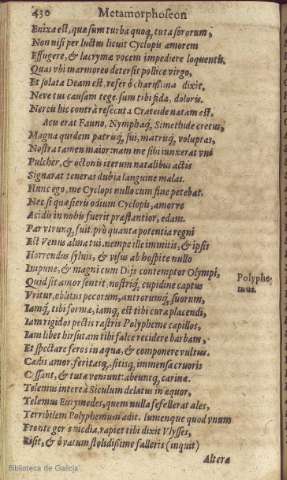 430 Metamorphoseon
Enixa est, quæ sum turba quoq, tuta sororum,
Non nisi per luctus licuit Cyclopis amorem
Effugere, & lacrymæ vocem impediere loquentis.
Quas vbi marmoreo detersit pollice virgo,
Et solata Deam est, refer ô charissima dixit,
Neve tui causam tege sum tibi fida, doloris.
Nereis his contrà resecuta Crateide natam est.
Acis erat Fauno, Nymphaq, Simethide cretus,
Magna quidem patrisq, sui, matrisq, voluptas,
Nostra tamen maior nam me sibi iunxerat vni
Pulcher, & octonis iterum natalibus actis
Signarat teneras dubia lanugine malas.
Hunc ego, me Cyclops nullo cum fine petebat.
Nec si quæsieris odium Cyclopis, amorne
Acidis in nobis fuerit præstantior, edam.
Par vtrunq, fuit: prò quanta potentia regni
Est Venus alma tui, nempe ille immitis, & ipsis
Horrendus syluis, & visus ab hospite nullo
Impune, & magni cum Dijs contemptor Olympi,
Quid sit amor sentit, nostriq, cupidine captus
Vritur, oblitus pecorum, antrorumq, suorum,
Iamq, tibi formæ, iamq, est tibi cura placendi,
Iam rigidos pectis rastris Polypheme capillos,
Iam libet hirsutam tibi falce recidere barbam,
Et spectare feros in aqua, & componere vultus.
Cædis amor, feritasq, sitisq, immensa cruoris
Cessant, & tutæ veniunt: abeuntq, carinæ.
Telemus interea Siculum delatus in æquor,
Telemus Eurymides, quem nulla fefellerat ales,
Terribilem Polyphemum adit. lumenque quod vnum
Fronte geris media, rapiet tibi dixit Vlysses,
Risit, & ô vatum stolidissime falleris (inquit)
Altera
Polyphe-
mus.
Biblioteca de Galicia